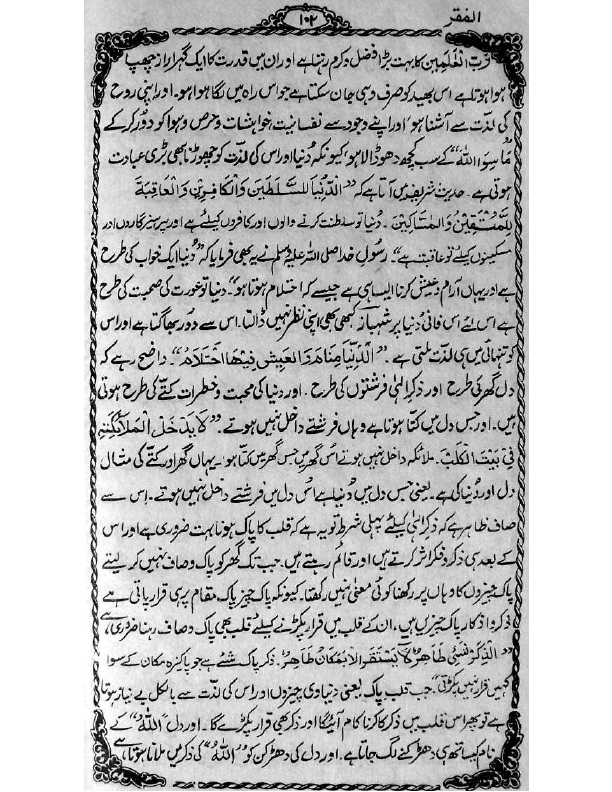 الفقر
۱۰۲
رَبُّ الْعٰلَمِیْن کا بہت بڑا فضل و کرم رہتا ہے اور ان میں قدرت کا ایک گہرا راز چھپا
ہوا ہوتا ہے اس بھید کو صرف وہی جان سکتا ہے جو اس راہ میں لگا ہوا ہو۔ اور اپنی روح
کی لذت سے آشنا ہو اور اپنے وجود سے نفسانیت، خواہشات و حرص و ہوا کو دور کر کے
مَا سِوَا اللہ کے سب کچھ دھو ڈالا ہو، کیونکہ دنیا اور اس کی لذت کو چھوڑنا بھی بڑی عبادت
ہوتی ہے۔ حدیث شریف میں آتا ہے کہ ”اَلدُّنْیَا لِلسَّلَطِیْنَ وَالْکَافِرِیْنَ وَالْعَاقِبَۃُ
لِلْمُتَّقِیْنَ وَالْمَسَاکِیْنَ۔ دنیا تو سلطنت کرنے والوں اور کافروں کیلئے ہے اور پرہیزگاروں اور
مسکینوں کیلئے تو عاقبت ہے“۔ رسولِ خدا صلی اللہ علیہ وسلم نے یہ بھی فرمایا کہ ”دنیا ایک خواب کی طرح
ہے اور یہاں آرام و عیش کرنا ایسا ہی ہے جیسے کہ احتلام ہوتا ہو“۔ دنیا تو عورت کی صحبت کی طرح
ہے اس لئے اس فانی دنیا پر شہباز کبھی بھی اپنی نظر نہیں ڈالتا۔ اس سے دور بھاگتا ہے اور اس
کو تنہائی میں ہی لذت ملتی ہے۔ ”اَلدُّنْیَا مَنَامٌ وَالْعَیْشُ فِیْھَا اِحْتَلَامٌ“۔ واضح رہے کہ
دل گھر کی طرح اور ذکرِ الٰہی فرشتوں کی طرح۔ اور دنیا کی محبت و خطرات کتے کی طرح ہوتی
ہیں۔ اور جس دل میں کتا ہوتا ہے وہاں فرشتے داخل نہیں ہوتے۔ ”لَا یَدْخَلُ الْمَلَآئِکَتِہٖ
فِیْ بَیْتِ الْکَلْبِ۔ ملائکہ داخل نہیں ہوتے اُس گھر میں جس گھر میں کتا ہو۔ یہاں گھر اور کتے کی مثال
دل اور دنیا کی ہے۔ یعنی جس دل میں دنیا ہے اُس دل میں فرشتے داخل نہیں ہوتے۔ اس سے
صاف ظاہر ہے کہ ذکرِ الٰہی کیلئے پہلی شرط تو یہ ہے کہ قلب کا پاک ہونا بہت ضروری ہے اور اس
کے بعد ہی ذکر و فکر اثر کرتے ہیں اور قائم رہتے ہیں۔ جب تک گھر کو پاک و صاف نہیں کر لیتے
پاک چیزوں کا وہاں پر رکھنا کوئی معنی نہیں رکھتا۔ کیونکہ پاک چیز پاک مقام پر ہی قرار پاتی ہے
ذکر و اذکار پاک چیزیں ہیں۔ ان کے قلب میں قرار پکڑنے کیلئے قلب بھی پاک و صاف رہنا ضروری ہے
”اَلذِّکْرُ شَیٌٔ طَاھِرٌ لَا یَسْتَقَرُّ اِلَّا بِمَکَانٍ طَاھِرٍ۔ ذکر پاک شئے ہے جو پاکیزہ مکان کے سوا
کہیں قرار نہیں پکڑتی“ جب قلب پاک یعنی دنیاوی چیزوں اور اس کی لذت سے بالکل بے نیاز ہوتا
ہے تو پھر اس قلب میں ذکر کا کرنا کام آئیگا اور ذکر بھی قرار پکڑے گا۔ اور دل ”اَللہُ“ کے
نام کیساتھ ہی دھڑکنے لگ جاتا ہے۔ اور دل کی دھڑکن کو ”اَللہُ“ کی ذکر میں ملانا ہوتا ہے